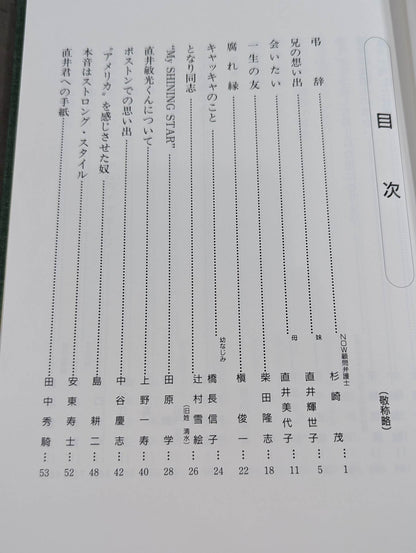 目次
(敬称略)
弔辞……NOW顧問弁護士 杉崎茂…1
兄の想い出……妹 直井輝世子…5
会いたい……母 直井美代子…11
一生の友……柴田隆志…18
腐れ縁……槇俊一…22
キャッキャのこと……幼なじみ 橋長信子…24
となり同志……辻村雪絵(旧姓 清水)…26
"My SHINING STAR"……田原学…28
直井敏光くんについて……上野一寿…40
ボストンでの思い出……中谷慶志…42
"アメリカ"を感じさせた奴……島耕二…48
本音はストロング・スタイル……安東寿士…52
直井君への手紙……田中秀騎…53